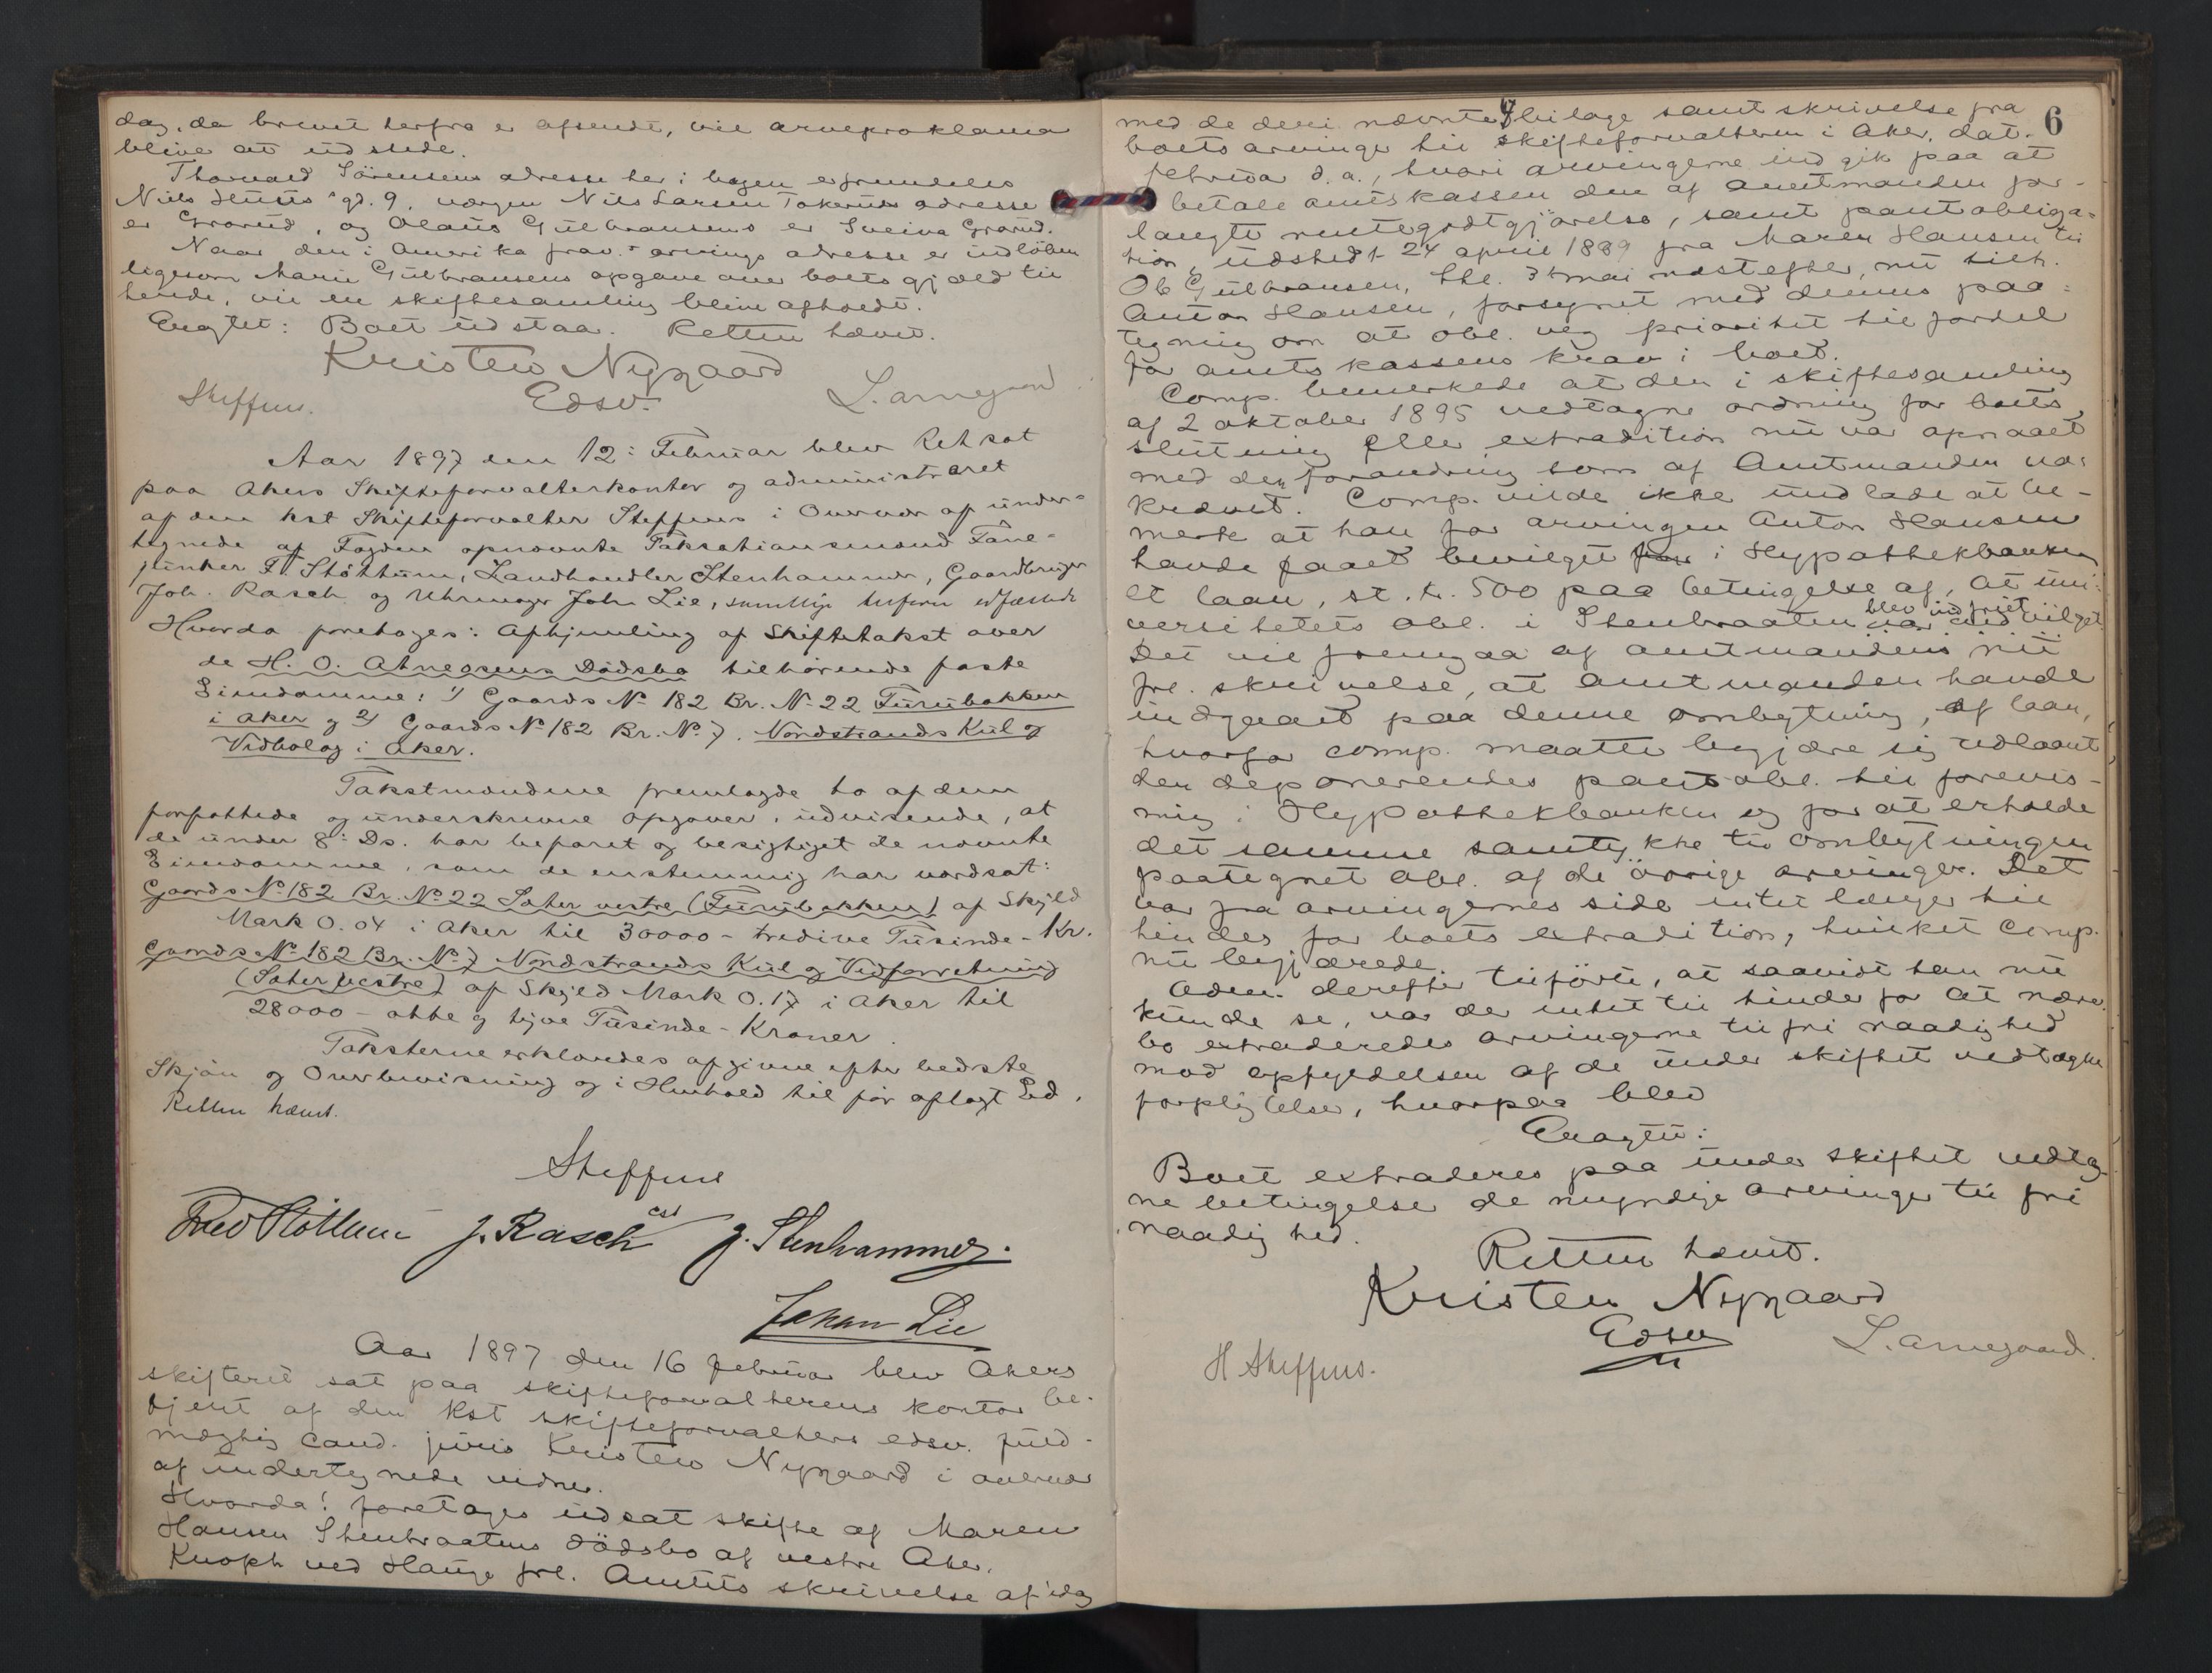 dag, da brevet herfra er afsendt, vil arveproklama
blive at udstede.
Thorvald Sörensens adresse her i byen er fremdeles
Niels Huus'gd. 9, værgen Nils Larsen Tokeruds adresse
er Grorud, og Olaus Gulbransens er Sveiva Grorud.
Naar den i Amerika frav. arvings adresse er indlöben
ligesom Marin Gulbransens opgave over boets gjæld til
hende, vil en skiftesamling blive afholdt.
Eragtet: Boet udstaar. Retten hævet.
Kristen Nygaard
Edsv.
Steffens. L. Arnegaard
Aar 1897 den 12: Februar blev Ret sat
paa Akers Skifteforvalterkontor og administreret
af den kst Skifteforvalter Steffens i Overvær af under-
tegnede af Fogden opnævnte Taksationsmænd Fane-
junker F. Stöttum, Landhandler Stenhammer, Gaardbruger
Joh. Rasch og Uhrmager Joh. Lie, samtlige edfæstede
Hvorda foretages: Afhjemling af Skiftetakst over
de H. O. Ahnegrens Dödsbo tilhørende faste
Eiendomme: 1) Gaards No 182 Br. No 22 Furubakken
i Aker og 2) Gaards No 182 Br. No 7. Nordstrands Kul og
Vedbolag i Aker.
Takstmændene fremlagde to af dem
forfattede og underskrevne Opgaver, udvisende, at
de under 8: Ds. har befaret og besigtiget de nævnte
Eiendomme, som de enstemmig har værdsat:
Gaards No 182 Br. No 22 Sæter vestre (Furubakken) af Skyld
Mark 0.04 i Aker til 30000 - tredive Tusinde - Kr.
Gaards No 182 Br. No 7 Nordstrands Kul og Vedforretning
(Sæter vestre) af Skyld Mark 0.17 i Aker til
28000 - otte og tyve Tusinde - Kroner.
Taksterne erklæredes afgivne efter bedste
Skjön og Overbevisning og i Henhold til før aflagt Ed.
Retten hævet.
Steffens
Fred Stöttum J. Rasch J. Stenhammer.
Johan Lie
Aar 1897 den 16 februar blev Akers
skifteret sat paa skifteforvalterens kontor be-
tjent af den kst skifteforvalters edsv. fuld-
mægtig cand. juris Kristen Nygaard i overvær
af undertegnede vidner.
Hvorda: foretages udsat skifte af Maren
Hansen Stenbraatens dödsbo af vestre Aker.
Knoph ved Hauge frl. Amtets skrivelse af idag
6
med de deri nævnte 4 bilage samt skrivelse fra
boets arvinger til skifteforvalteren i Aker, dat.
februar d.a., hvori arvingerne indgik paa at
betale amtskassen den af amtmanden for-
langte rentegodtgjörelse, samt pantobliga-
tion, udstedt 24 april 1889 fra Maren Hansen til
Ole Gulbransen, thl. 3 mai næstefter, nu tilh.
Anton Hansen, forsynet med dennes paa-
tegning om at obl. veg prioritet til fordel
for amtskassens krav i boet.
Comp. bemerkede at den i skiftesamling
af 2 oktober 1895 vedtagne ordning for boets
slutning eller extradition nu var opnaaet
med den forandring som af Amtmanden var
krævet. Comp. vilde ikke undlade at be-
merke at han for arvingen Anton Hansen
havde faaet bevilget i Hypothekbanken
et laan, st. kr. 500 paa betingelse af, at uni-
versitetets obl. i Stenbraaten blev indfriet
Det vil fremgaa af amtmandens nu
frl. skrivelse, at Amtmanden havde
indgaaet paa denne ombytning af laan,
hvorfor comp. maatte begjære sig udlaant
den deponerendes pantobl. til forevis-
ning i Hypothekbanken og for at erholde
det samme samtykke til ombytningen
paategnet obl. af de övrige arvinger. Det
var fra arvingernes side intet længer til
hinder for boets extradition, hvilket Comp.
nu begjærede.
Adm. derefter tilförte, at saavidt han nu
kunde se, var der intet til hinder for at nærv.
bo extraderedes arvingerne til fri raadighed
mod opfyldelsen af de under skiftet vedtagne
forpligtelser, hvorpaa blev
Eragtet:
Boet extraderes paa under skiftet vedtag-
ne betingelser de myndige arvinger til fri
raadighed.
Retten hævet.
Kristen Nygaard
Edsv
H Steffens. L. Arnegaard.